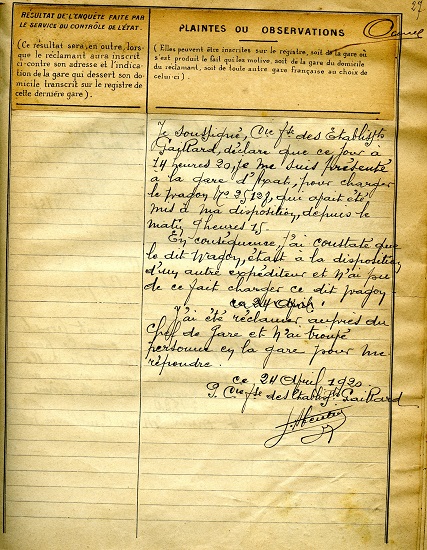 27
RÉSULTAT DE L'ENQUÊTE FAITE PAR
LE SERVICE DU CONTRÔLE DE L'ÉTAT.
(Ce résultat sera, en outre, lors-
que le réclamant aura inscrit
ci-contre son adresse et l'indica-
tion de la gare qui dessert son do-
micile transcrit sur le registre de
cette dernière gare).
PLAINTES OU OBSERVATIONS
(Elles peuvent être inscrites sur le registre, soit de la gare où
s'est produit le fait qui les motive, soit de la gare du domicile
du réclamant, soit de toute autre gare française au choix de
celui-ci).
Je soussigné, Cre fse des Etablispts
Gaillard, déclare que ce jour à
14 heures 20, je me suis présenté
à la gare d'Axat, pour charger
le wagon No 25127, qui avait été
mis à ma disposition, depuis le
matin 9 heures 15.
En conséquence, j'ai constaté que
le dit wagon, était à la disposition
d'un autre expéditeur et n'ai pu
de ce fait charger ce dit wagon
ce 24 April!
J'ai été réclamer auprès du
Chef de Gare et n'ai trouvé
personne en la gare pour me
répondre.
ce 24 April 1920
P. Cre fse des Etablispts Gaillard